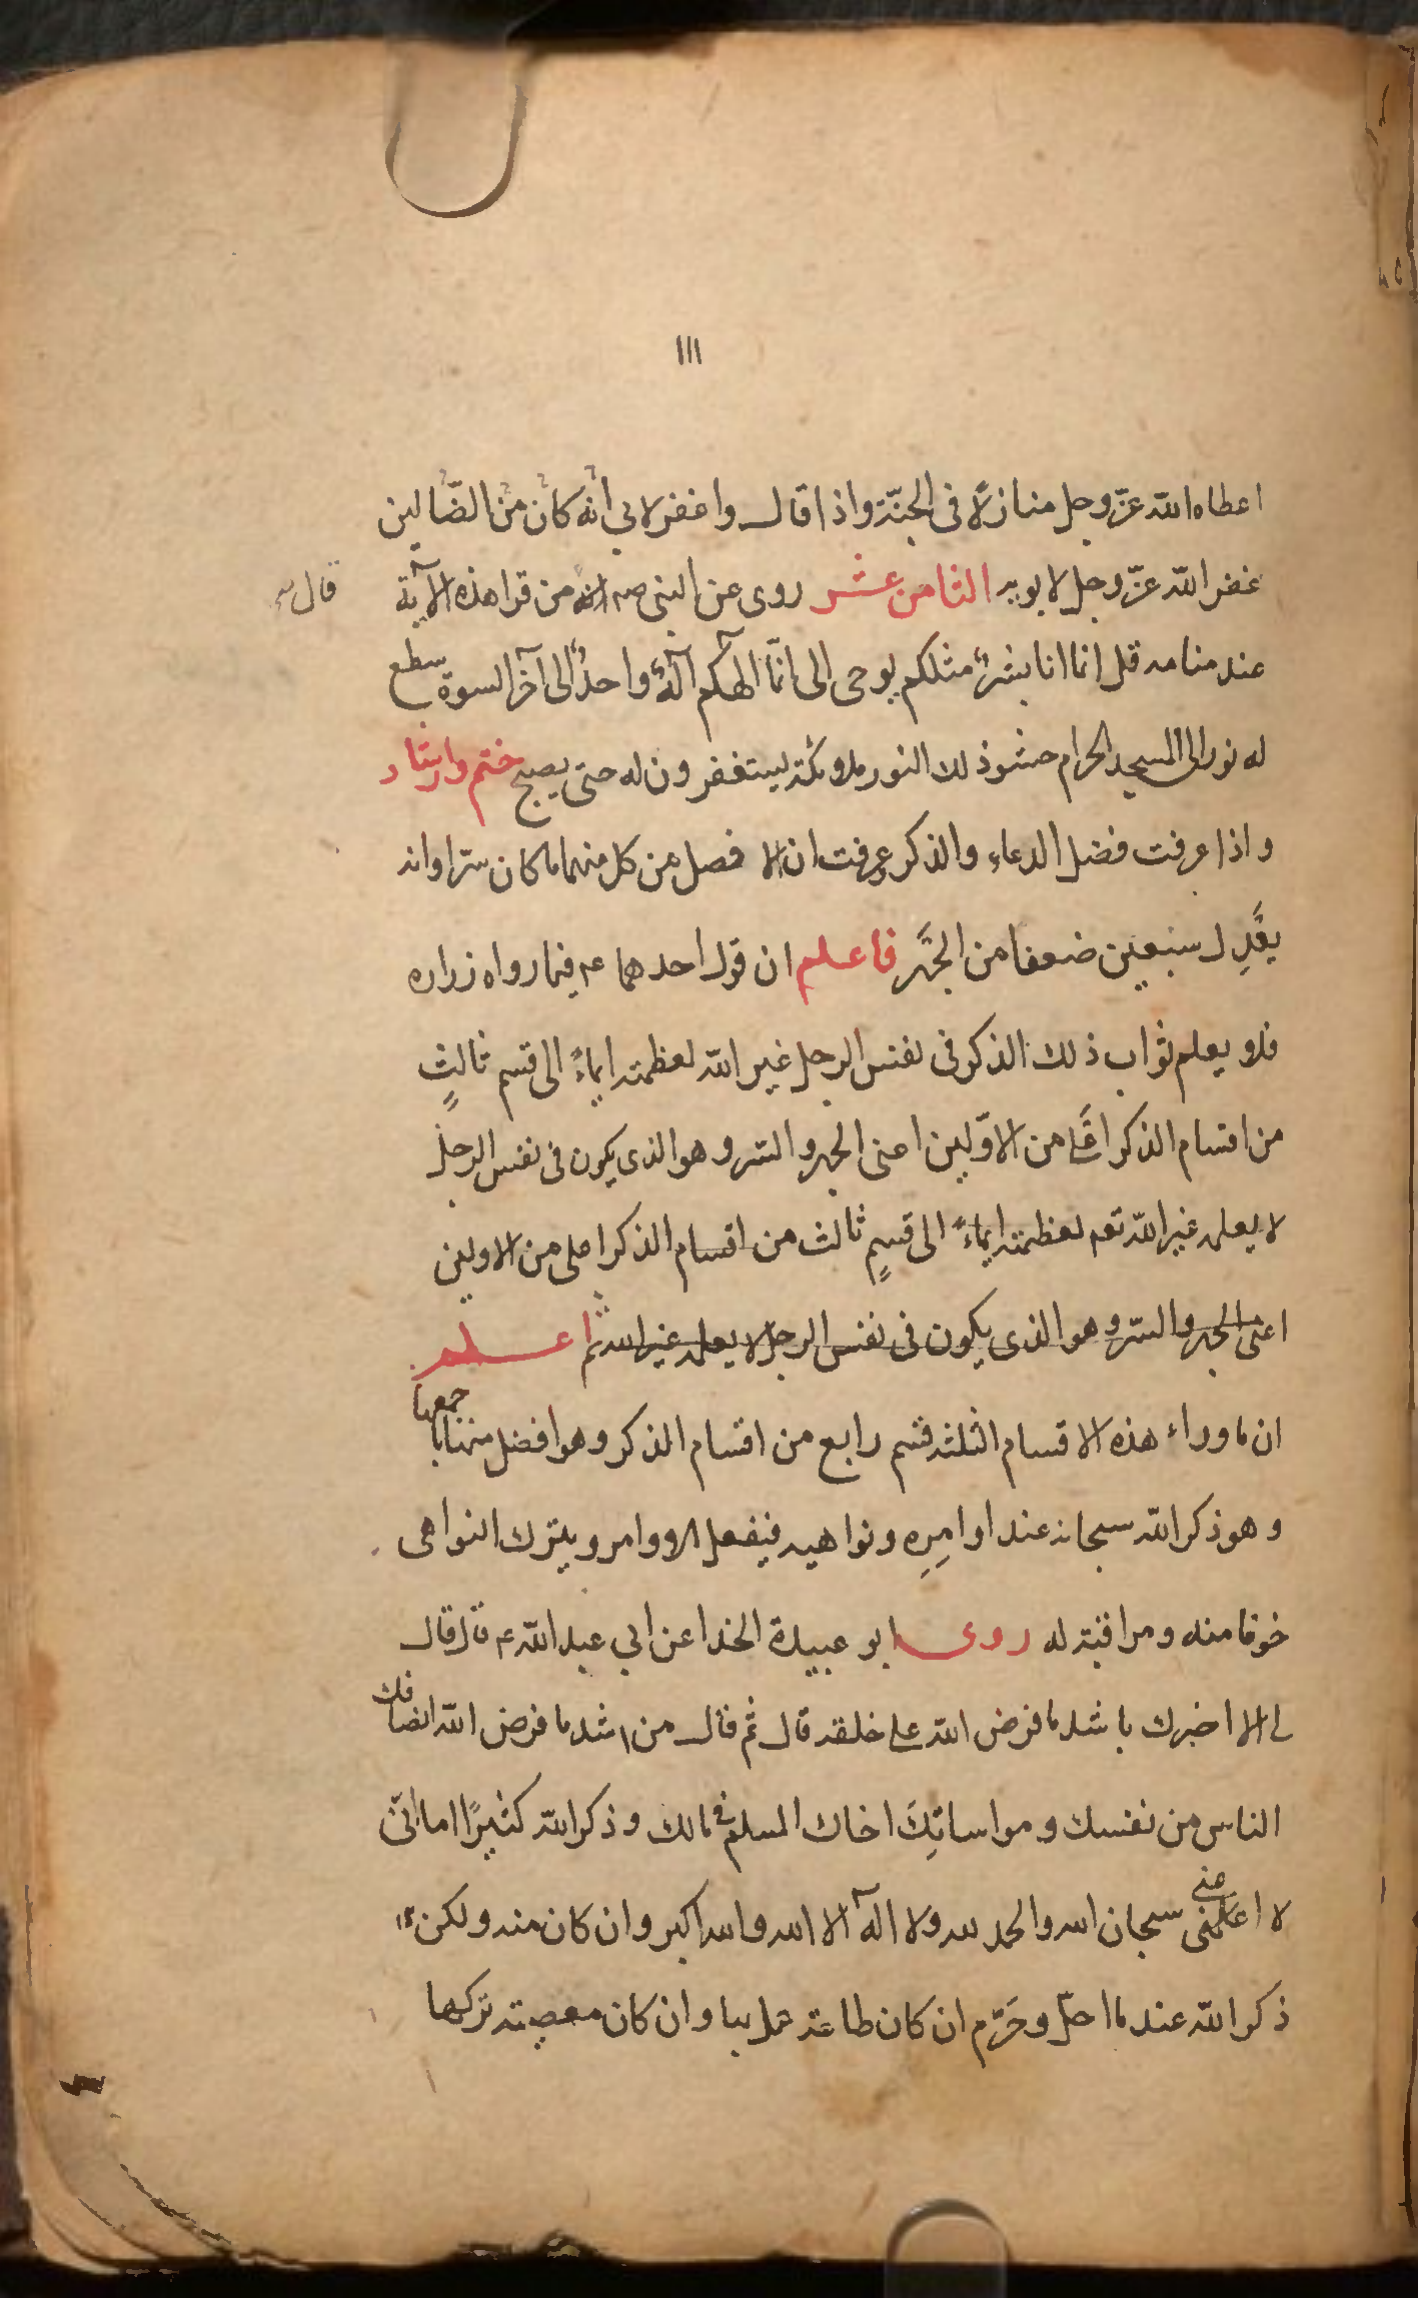 ١١١
اعطاه الله عزّ وجل منازلًا فى الجنّة واذا قال واغفر لابي انّه كان من الضّالين
غفر الله عزّ وجل لابويه الثامن عشر روى عن النبى صم انه من قرا هذه الآية
قال
عند منامه قل انما انا بشرٌ مثلكم يوحى الى انّما الهكم آلهٌ واحدٌ الى آخر السوة سطع
له نور الى المسجد الحرام حشو ذلك النور ملاىكة ليستغفرون له حتى يصبح ختم وارشاد
واذا عرفت فضل الدعاء والذكر وعرفت ان الا فصل من كل منهما ما كان سرّا وانه
يعَدِل سبعين ضعفا من الجَهر فاعلم ان قول احدهما ع فيما رواه زراره
فلا يعلم ثواب ذلك الذكر فى نفس الرجل غير الله لعظمته ايماءً الى قسم ثالثٍ
من اقسام الذكر اعَلى من الاوّلين اعنى الجهر والسر وهو الذى يكون فى نفس الرجل
لا يعلمه غير الله تعم لعظمته ايماءً الى قسمٍ ثالث من اقسام الذكر اعلى من الاولين
اعنى الجهر والسرّ وهو الذى يكون فى نفس الرجل لا يعلمه غير الله ثم اعلم
ان ما وراء هذه الاقسام الثلثه قسم رابع من اقسام الذكر وهو افضل منها با جمعها
وهو ذكر الله سبحانه عند اوامِرِه ونواهيه فيفعل الاوامر ويترك النواهى
خوفا منه ومراقبة له روى ابو عبيدة الخذا عن ابي عبد الله ع قال قال
لى الا اخبرك باشد ما فرض الله على خلقه قال ثم قال من اشد ما فرض الله انصافك
الناس من نفسك ومواساتِكَ اخاك المسلم فى مالك وذكر الله كثيرًا اما انّى
لا اعنى سبحان الله والحمد لله ولا الهَ الا الله والله اكبر وان كان منه ولكن
ذكر الله عند ما احلّ وحَرّم ان كان طاعة عمل بها وان كان معصية تركها